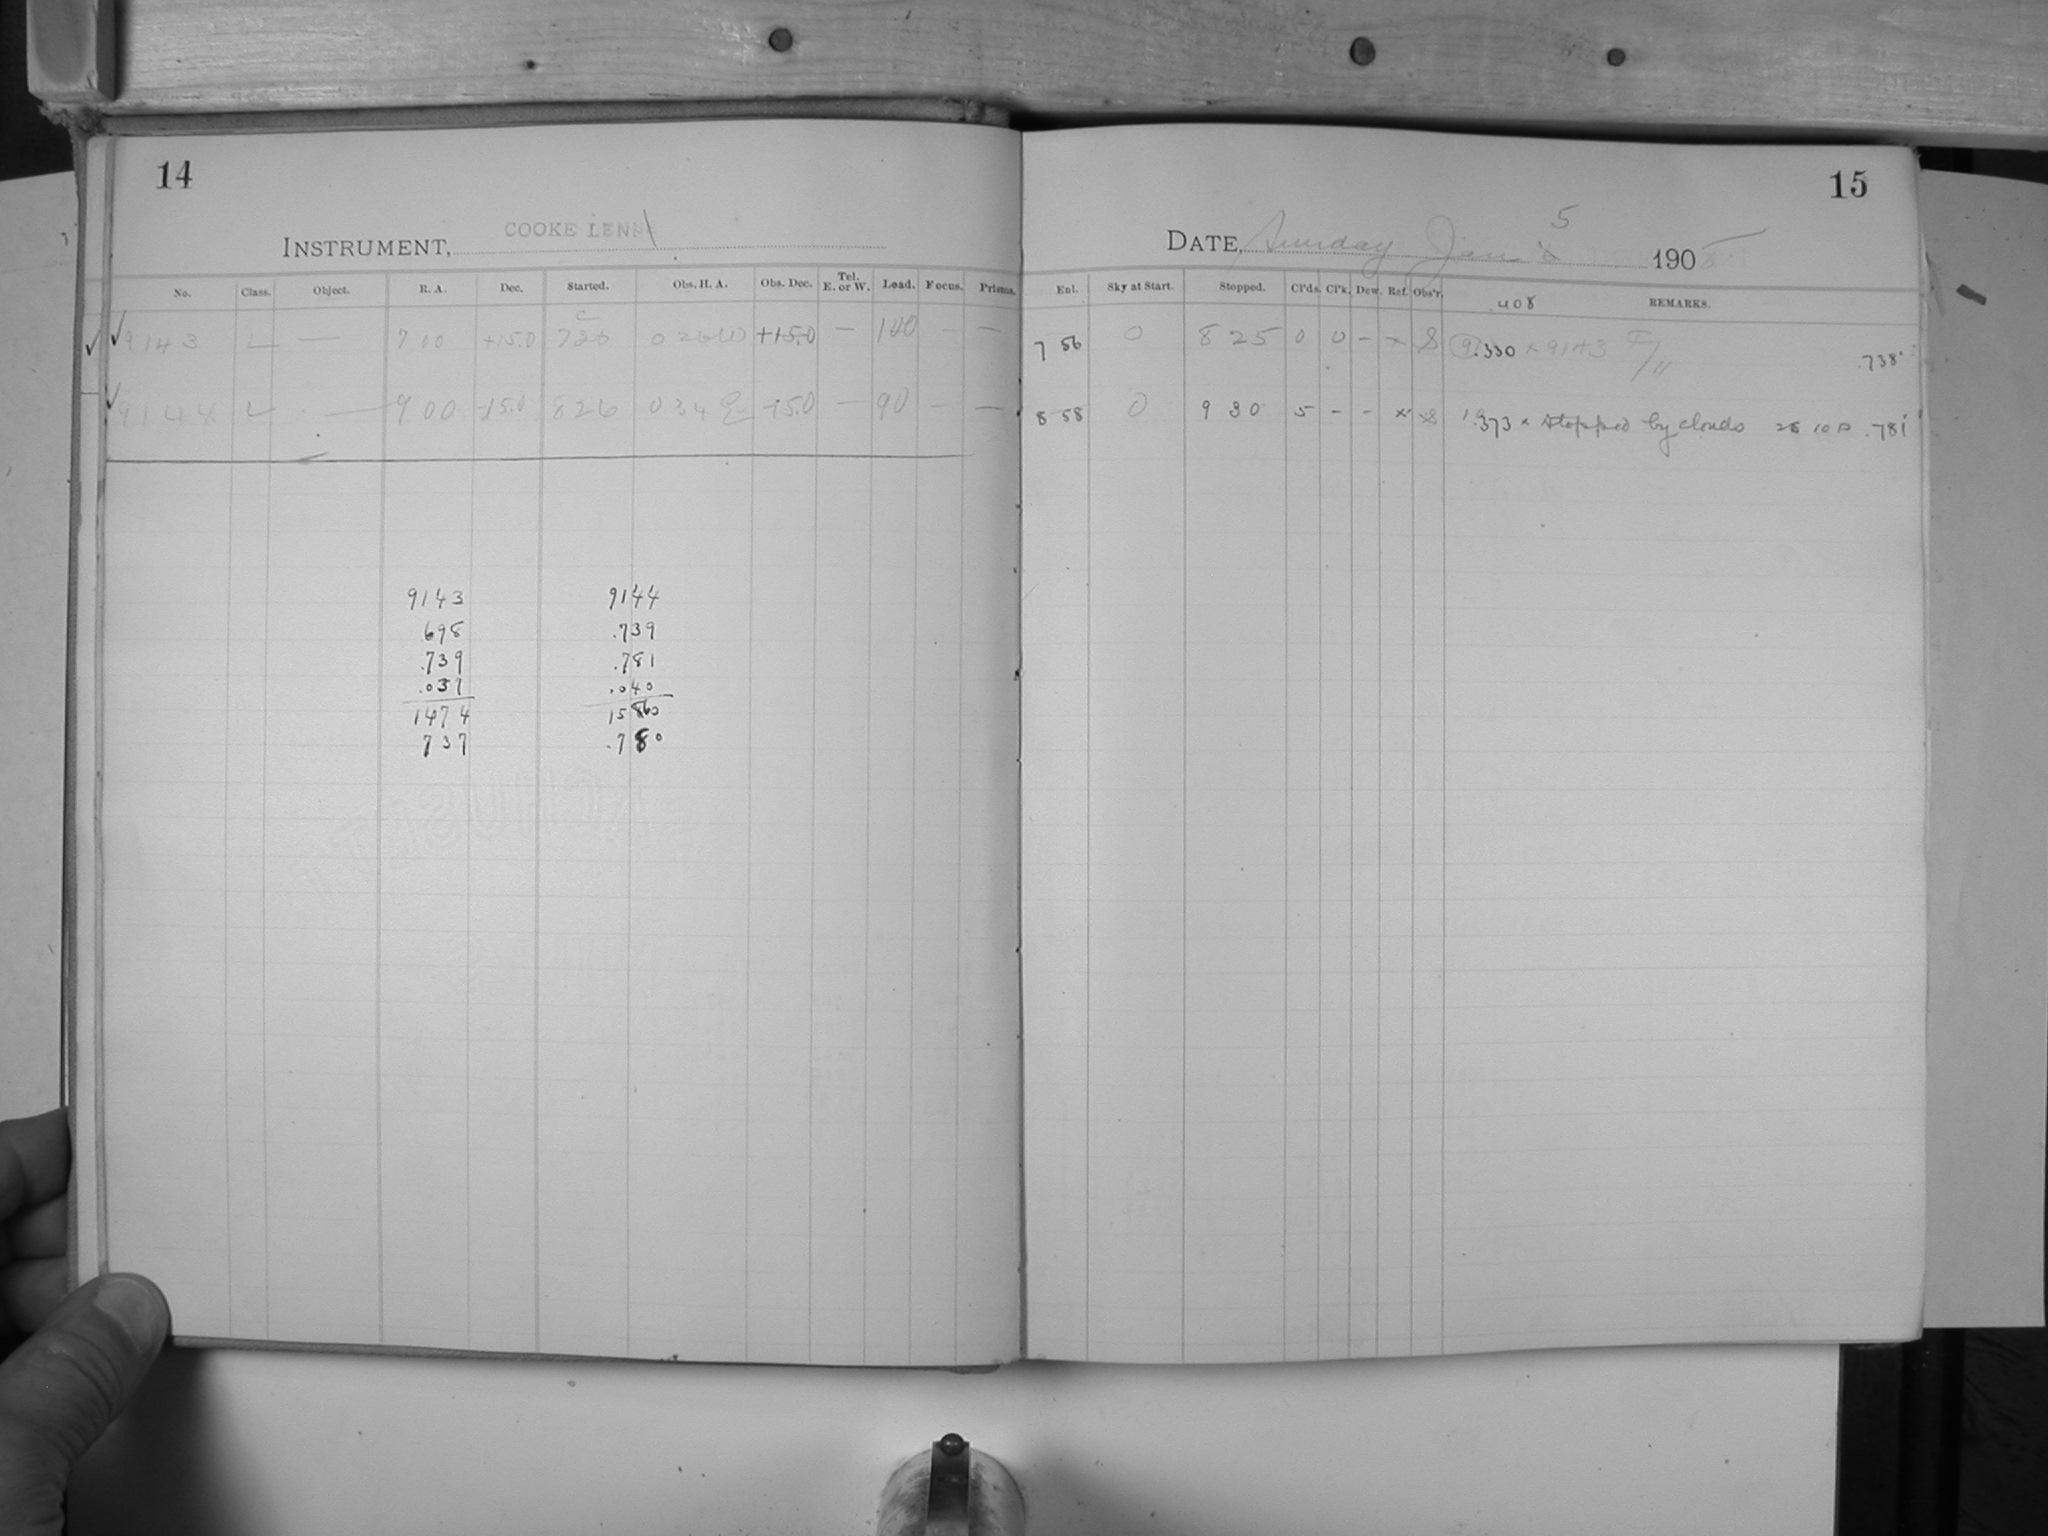 14
INSTRUMENT, COOKE LENS
No. Class. Object. R. A. Dec. Started. Obs. H. A. Obs. Dec. Tel. E. or W. Load. Focus. Prisms.
9143 L — 7 00 +15.0 726 0 26 W +15.0 — 100 — —
9144 L — 9 00 +15.0 826 0 34 E +15.0 — 90 — —
9143 9144
698 .739
.739 .781
.037 .040
1474 1560
737 .780
15
DATE, Sunday Jan 5 190
Enl. Sky at Start. Stopped. Cl'ds. Cl'k. Dew. Ref. Obs'r. REMARKS.
.408
7 56 0 8 25 0 0 - x S 9.330 x 9143 .738
8 58 0 9 30 5 - - x S .373 x Stopped by clouds .781